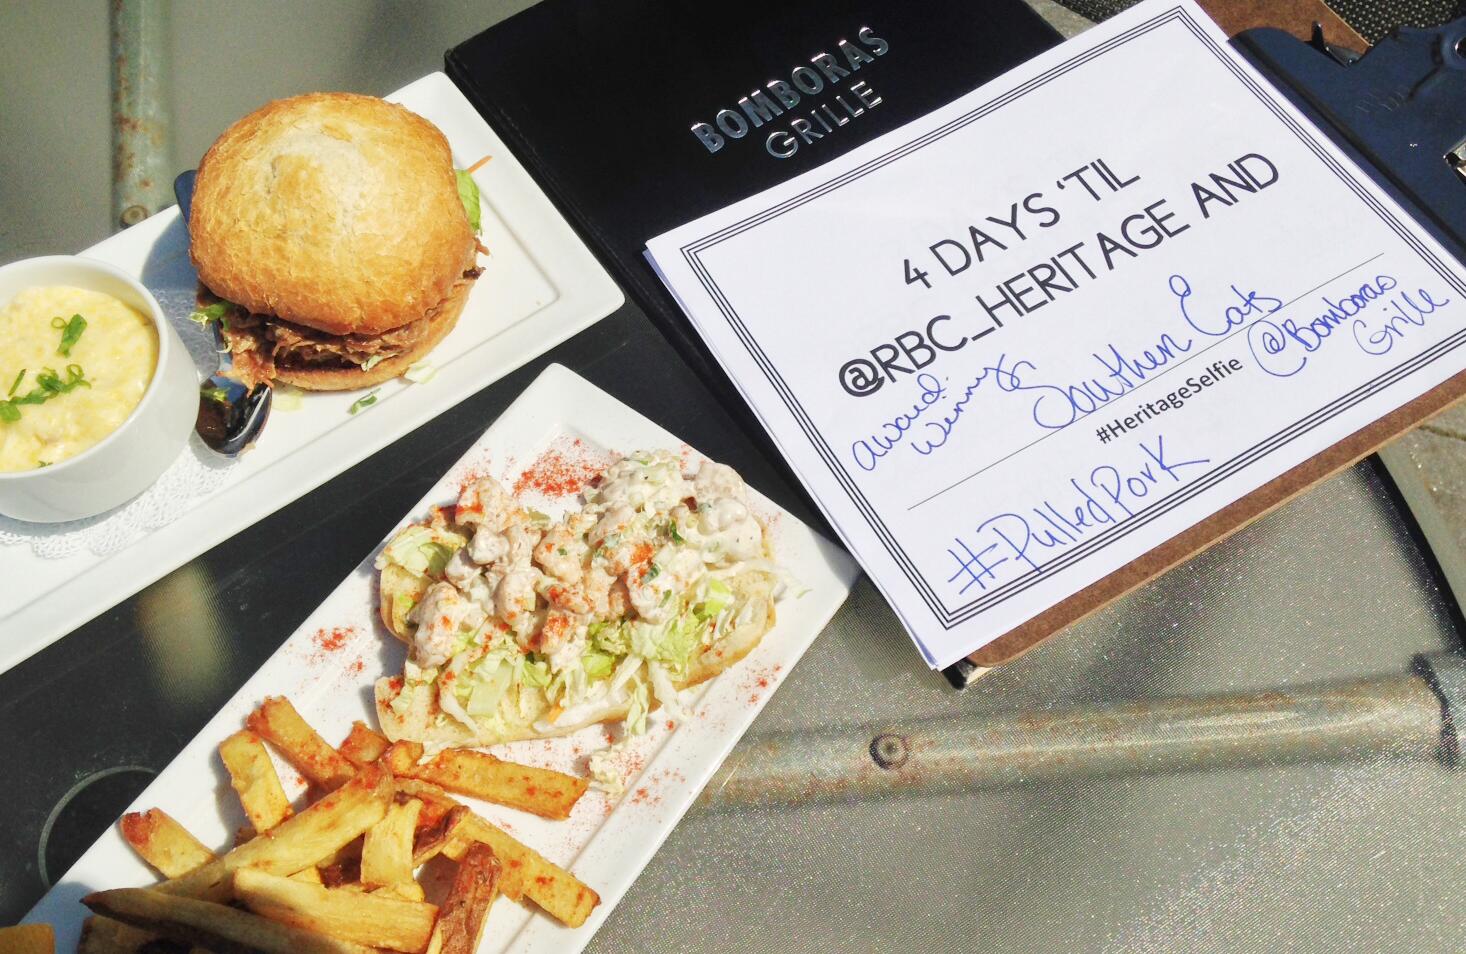 BOMBORAS
GRILLE
4 DAYS 'TIL
@RBC_HERITAGE AND
award
winning
Southern Eats
@Bomboras
Grille
#HeritageSelfie
#PulledPork